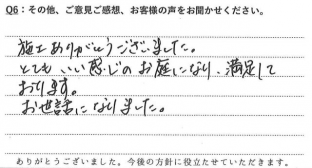 Q6：その他、ご意見ご感想、お客様の声をお聞かせください。
施工ありがとうございました。
とてもいい感じのお庭になり、満足して
おります。
お世話になりました。
ありがとうございました。今後の方針に役立たせていただきます。